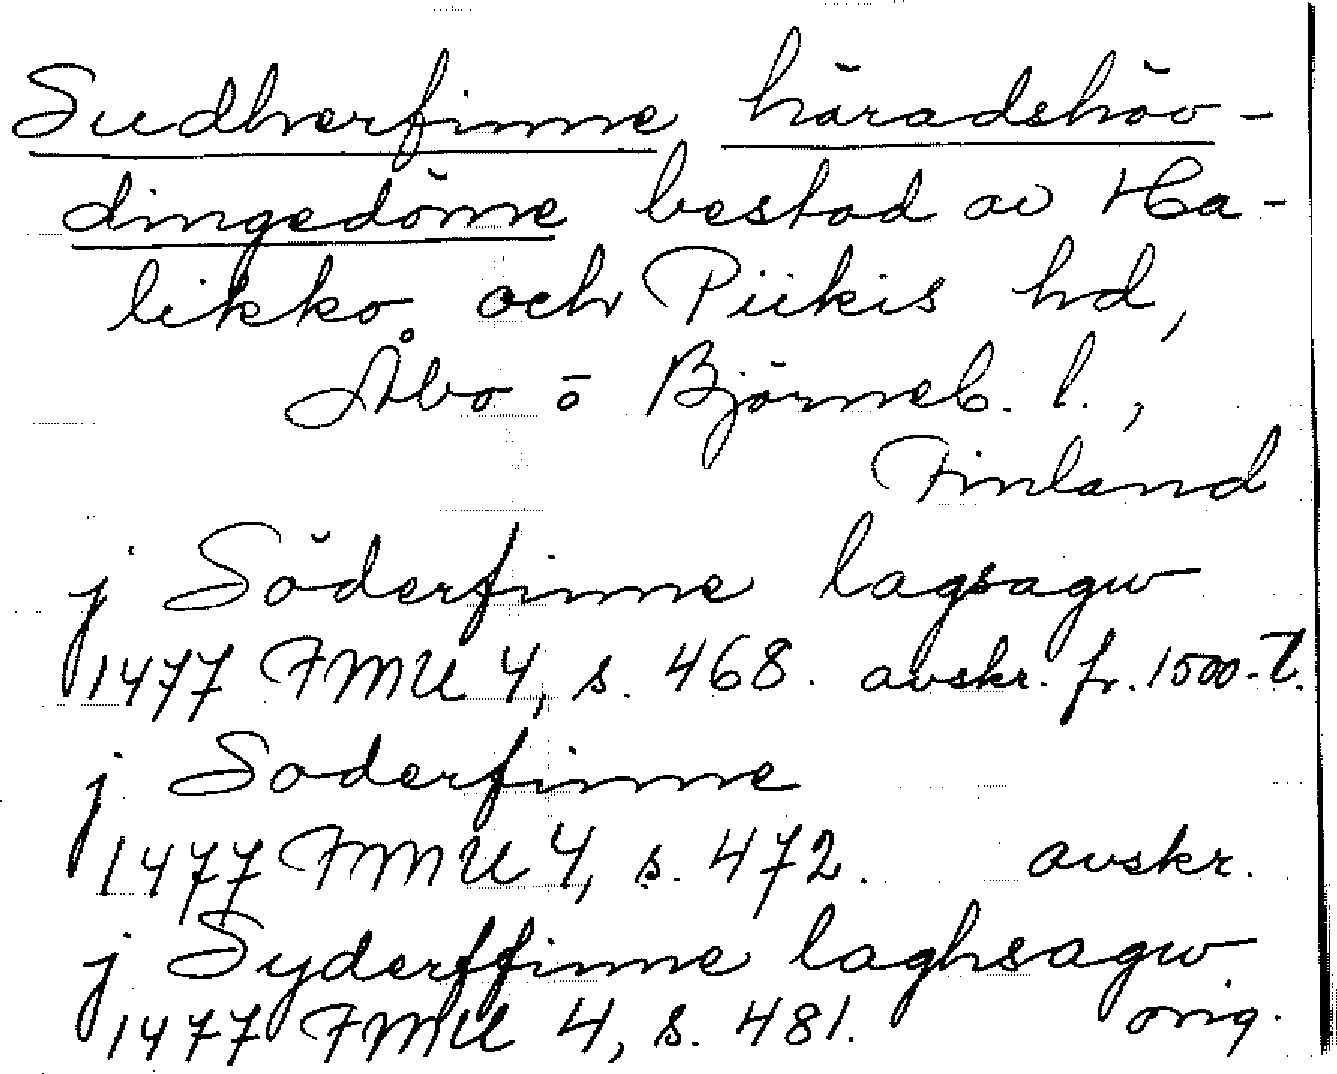 Sudherfinne häradshöv-
dingedöme bestod av Ha-
likko och Piikis hd,
Åbo o Björneb. l.,
Finland
j Söderfinne lagsagw
1477 FMU 4, s. 468. avskr. fr. 1500-t.
j Soderfinne
1477 FMU 4, s. 472. avskr.
j Syderffinne laghsagw
1477 FMU 4, s. 481. orig.